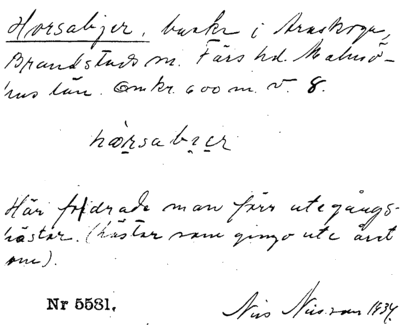 Horsabjer, backe i Arnskogen,
Brandstads sn. Färs hd. Malmö-
hus län. Omkr. 600 m. v. 8.
hòrsabjer
Här fodrade man förr utegångs-
hästar. (hästar som gingo ute året
om).
Nr 5531. Nils Nilsson 1934.